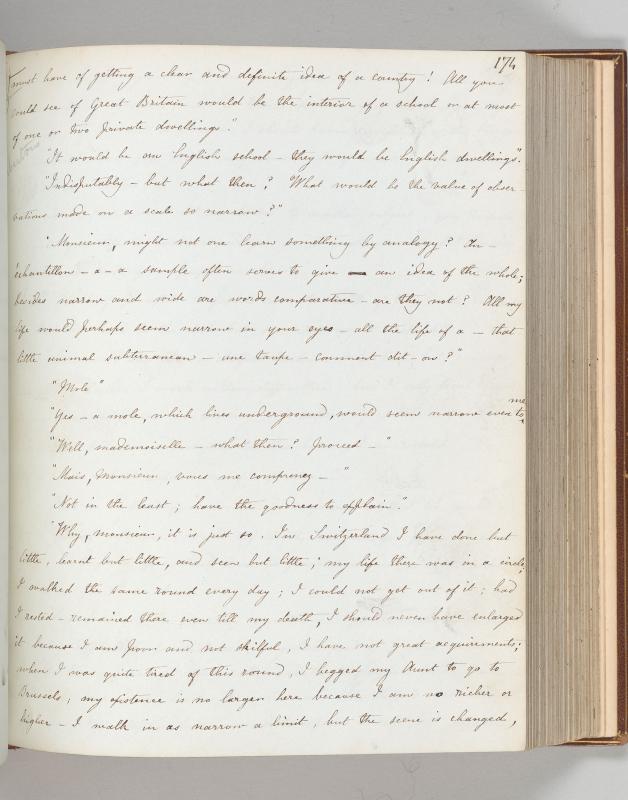 174
must have of getting a clear and definite idea of a country! All you
could see of Great Britain would be the interior of a school or at most
of one or two private dwellings."
"It would be an English school – they would be English dwellings".
"Indisputably – but what then? What would be the value of obser-
vations made on a scale so narrow?"
"Monsieur, might not one learn something by analogy? Un –
échantillon – a – a sample often serves to give — an idea of the whole;
besides narrow and wide are words comparative – are they not? All my
life would perhaps seem narrow in your eyes – all the life of a – that
little animal subterranean – une taupe – comment dit-on?"
"Mole"
"Yes – a mole, which lives underground, would seem narrow even to me
"Well, mademoiselle – what then? Proceed –"
"Mais, Monsieur, vous me comprenez – "
"Not in the least; have the goodness to explain".
"Why, monsieur, it is just so. In Switzerland I have done but
little, learnt but little, and seen but little; my life there was in a circle;
I walked the same round every day; I could not get out of it; had
I rested – remained there even till my death, I should never have enlarged
it because I am poor and not skilful, I have not great acquirements;
when I was quite tired of this round, I begged my Aunt to go to
Brussels; my existence is no larger here because I am no richer or
higher – I walk in as narrow a limit, but the scene is changed,